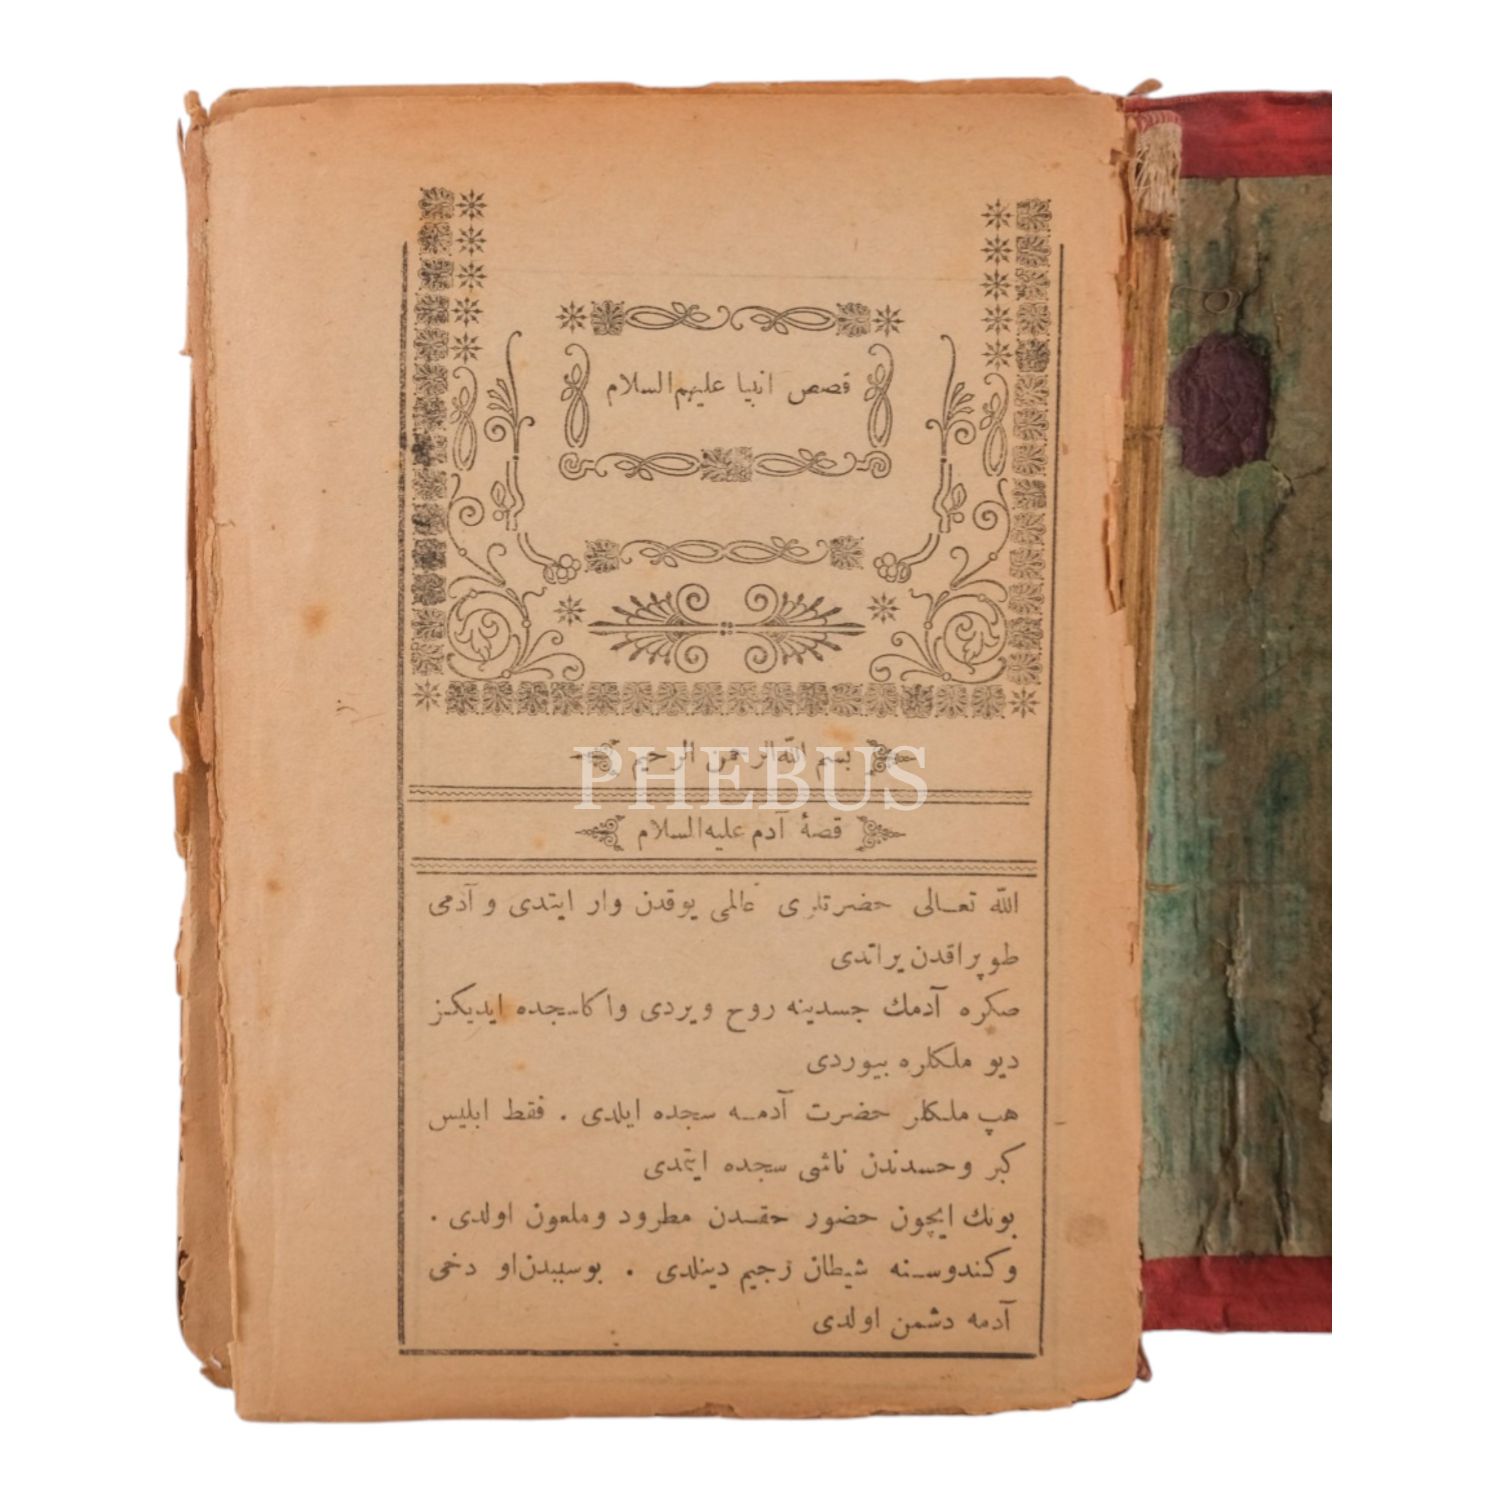 قصص انبیا علیهم السلام
بسم الله الرحمن الرحیم
PHEBUS
قصهٔ آدم علیه السلام
الله تعالی حضرتلری عالمی یوقدن وار ایتدی و آدمی
طوپراقدن یراتدی
صکره آدمك جسدینه روح ویردی واکاسجده ایدیکز
دیو ملکلره بیوردی
هپ ملکلر حضرت آدمه سجده ایلدی . فقط ابلیس
کبر وحسدندن ناشی سجده ایتمدی
بونك ایچون حضور حقدن مطرود وملعون اولدی .
وکندوسنه شیطان رجیم دینلدی . بوسببدن او دخی
آدمه دشمن اولدی